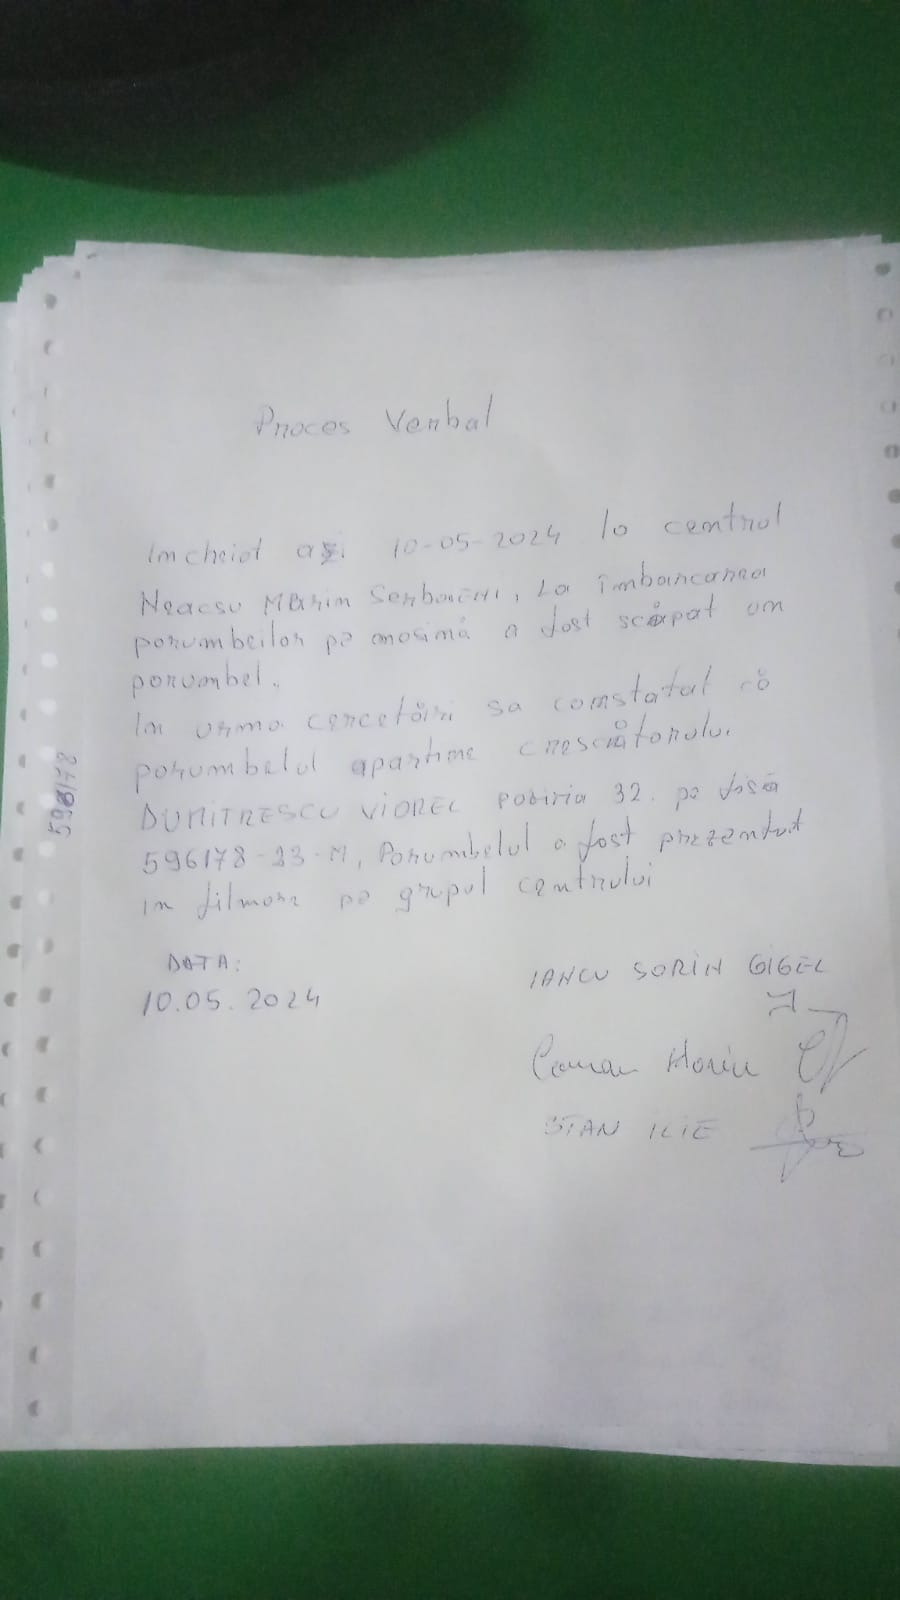 Proces Verbal
Incheiat azi 10-05-2024 la centrul
Neacsu Marin Serboieni, La îmbarcarea
porumbeilor pe mașină a fost scăpat un
porumbel.
In urma cercetării sa constatat că
porumbelul apartine crescătorului
DUMITRESCU VIOREL poziția 32. pe fisă
596178-23-M, Porumbelul a fost prezentat
in filmare pe grupul centrului
DATA:
10.05.2024
IANCU SORIN GIGEL
Coman Horia
STAN ILIE
596178